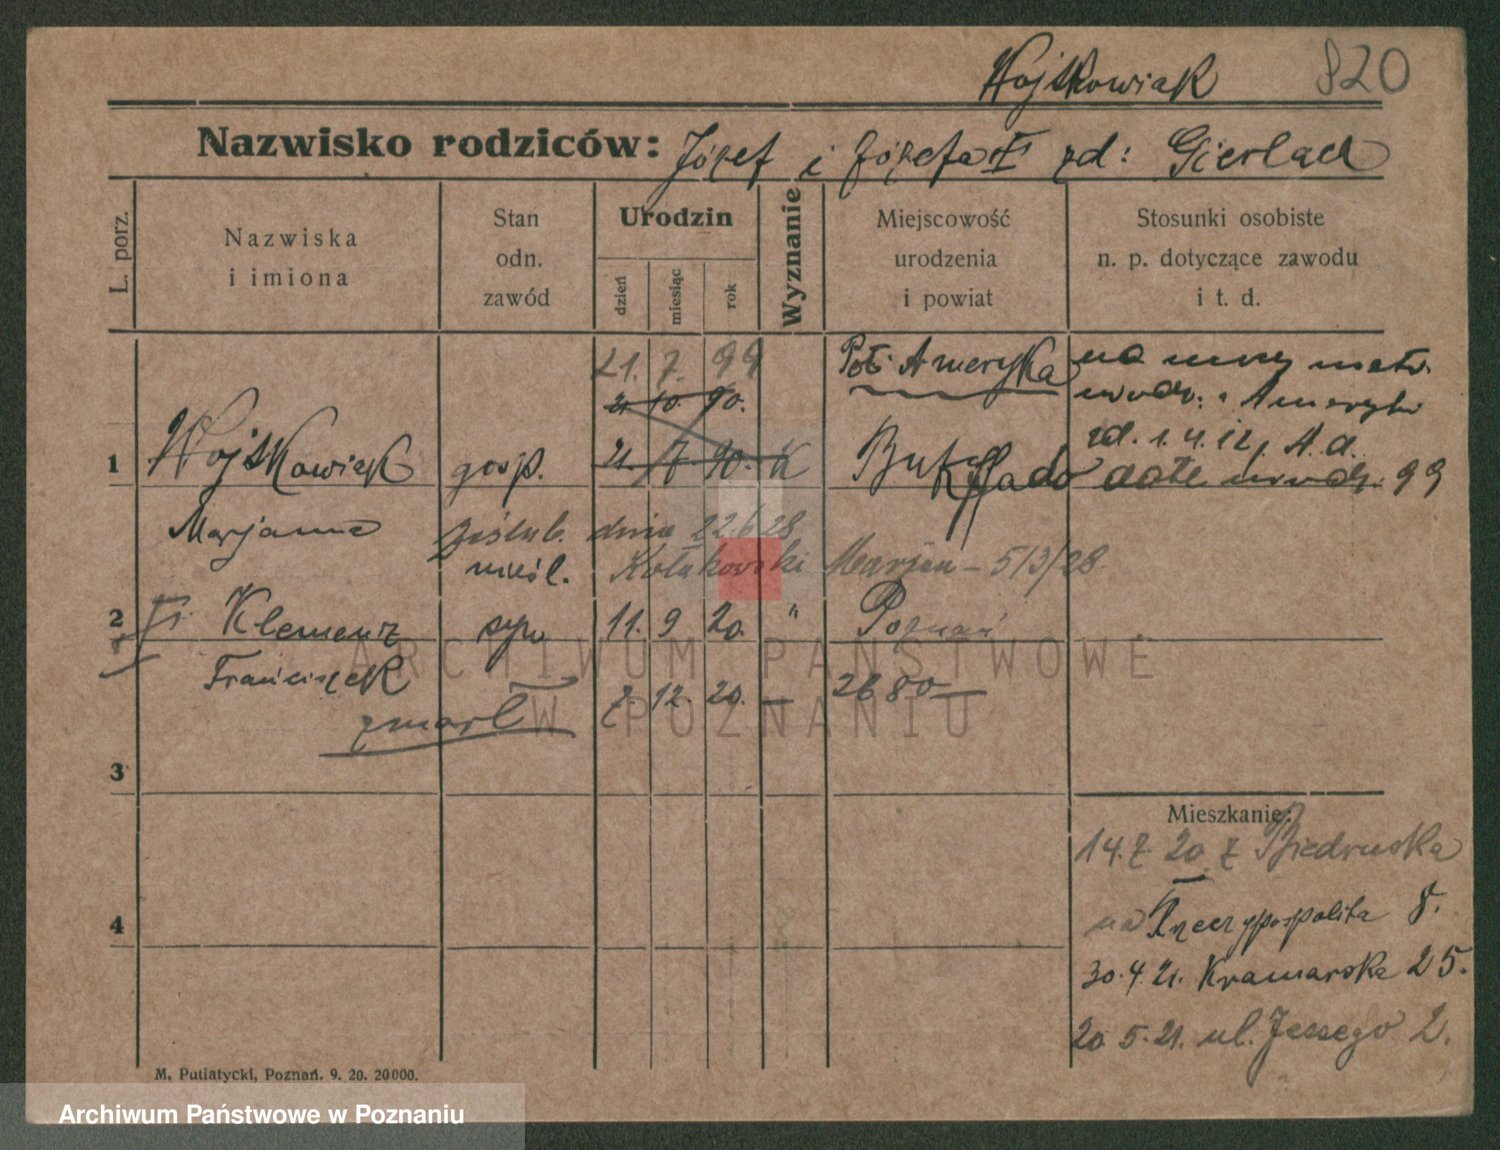 Wojtkowiak 820
Nazwisko rodziców: Józef i Józefa zd: Gierlach
L. porz.
Nazwiska i imiona
Stan odn. zawód
Urodzin
dzień
miesiąc
rok
Wyznanie
Miejscowość urodzenia i powiat
Stosunki osobiste n. p. dotyczące zawodu i t. d.
21. 7. 99 Półn. Ameryka
21. 10. 90.
1 Wojtkowiak gosp. 21. 7. 90. K Buffalo
na mocy metr.
urodz. Ameryki
zd. 1.4.12,
date urodz. 99
Marjanna zaślub. dnia 22.6.28
Kołakowski Marjan - 5/3/28
2 Klemens syn 11. 9 20. " Poznań
Franciszek 7. 12. 20. — 2680 —
zmarł
3
4
Mieszkanie:
14.7.20 z Biedruska
na Rzeczypospolita 8.
30.4.21. Kramarska 25.
20.5.21. ul. Jeszego 2.
M. Putiatycki, Poznań. 9. 20. 20000.
ARCHIWUM PAŃSTWOWE
W POZNANIU
Archiwum Państwowe w Poznaniu